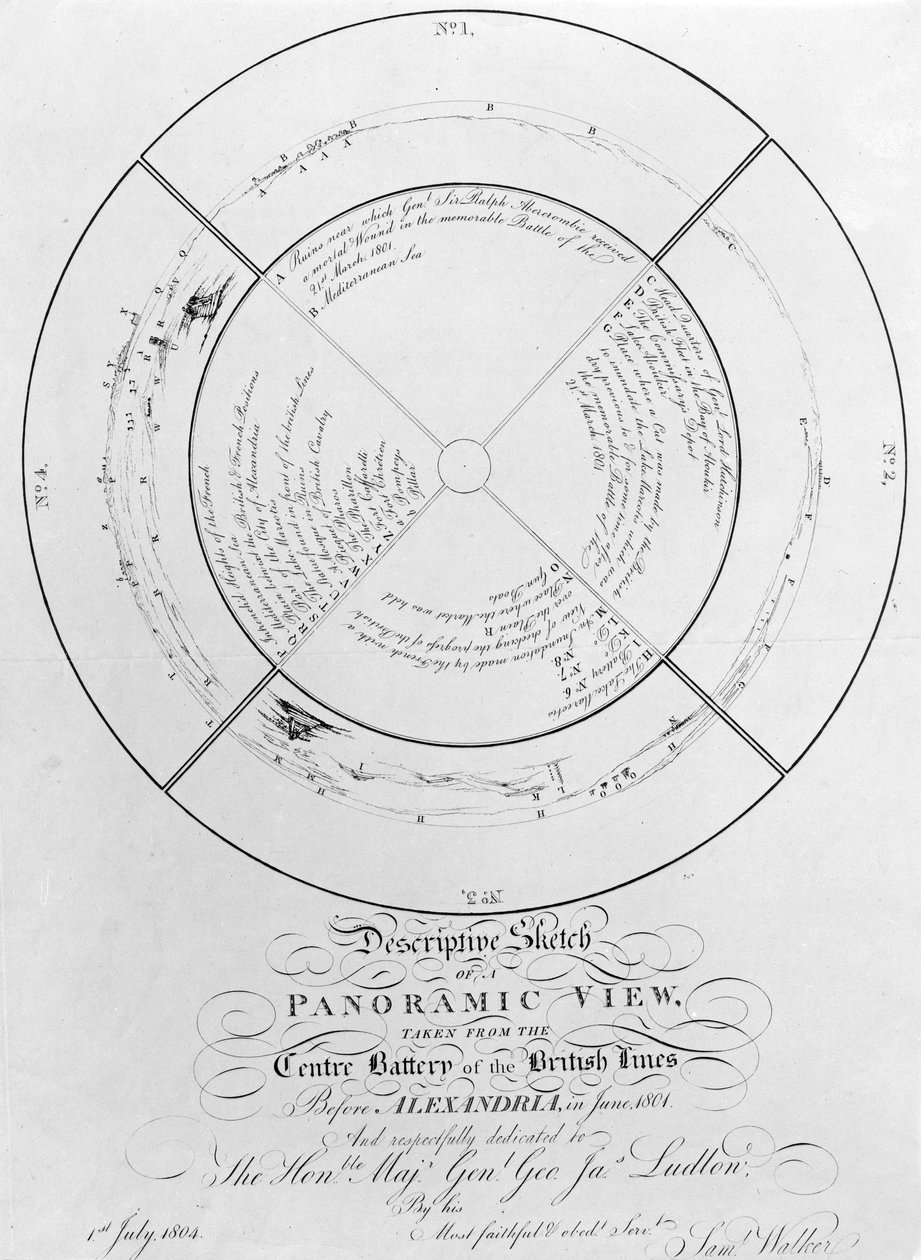 No. 1,
A Ruins near which Genl. Sir Ralph Abercrombie received
a mortal Wound in the memorable Battle of the
21st March, 1801.
B Mediterranean Sea
No. 2,
C Head Quarters of Genl. Lord Hutchinson
D British Fleet in the Bay of Aboukir
E The Commissary's Depot
F Lake Aboukir
G Place where a Cut was made by the British
to inundate the Lake Mareotis which was
dry previous to & for some time after
the memorable Battle of the
21st March 1801
No. 3,
H The Lake Mareotis
I Battery No. 6.
K Do. No. 7.
L Do. No. 8.
M
Inundation made by the French with a
View of checking the progress of the British
over the Plain R
N Place where the Market was held
O Gun Boats
No. 4,
P Intrench'd Heights of the French
Q Mediterranean Sea
R
S
T
V
W
X
Y
N
&
a Pompeys
Pillar
City of Alexandria
in front of the British Lines
Statue found in Ruins
Mosque of British Cavalry
The Pharillon
Fort Caffarelli
Fort Chrétien
A
A
A
A
B
B
B
B
C
E
D
F
F
G
N
H
O
O
O
H
K
L
I
H
H
M
M
T
T
R
R
P
P
Z
R
R
W
W
S
Y
X
R
R
U
V
Q
Q
Descriptive Sketch
OF A
PANORAMIC VIEW,
TAKEN FROM THE
Centre Battery of the British Lines
Before ALEXANDRIA, in June, 1801.
And respectfully dedicated to
The Honble. Majr. Genl. Geo. Jas. Ludlow,
By his
Most faithful & obedt. Servt.
1st July, 1804.
Saml. Walker